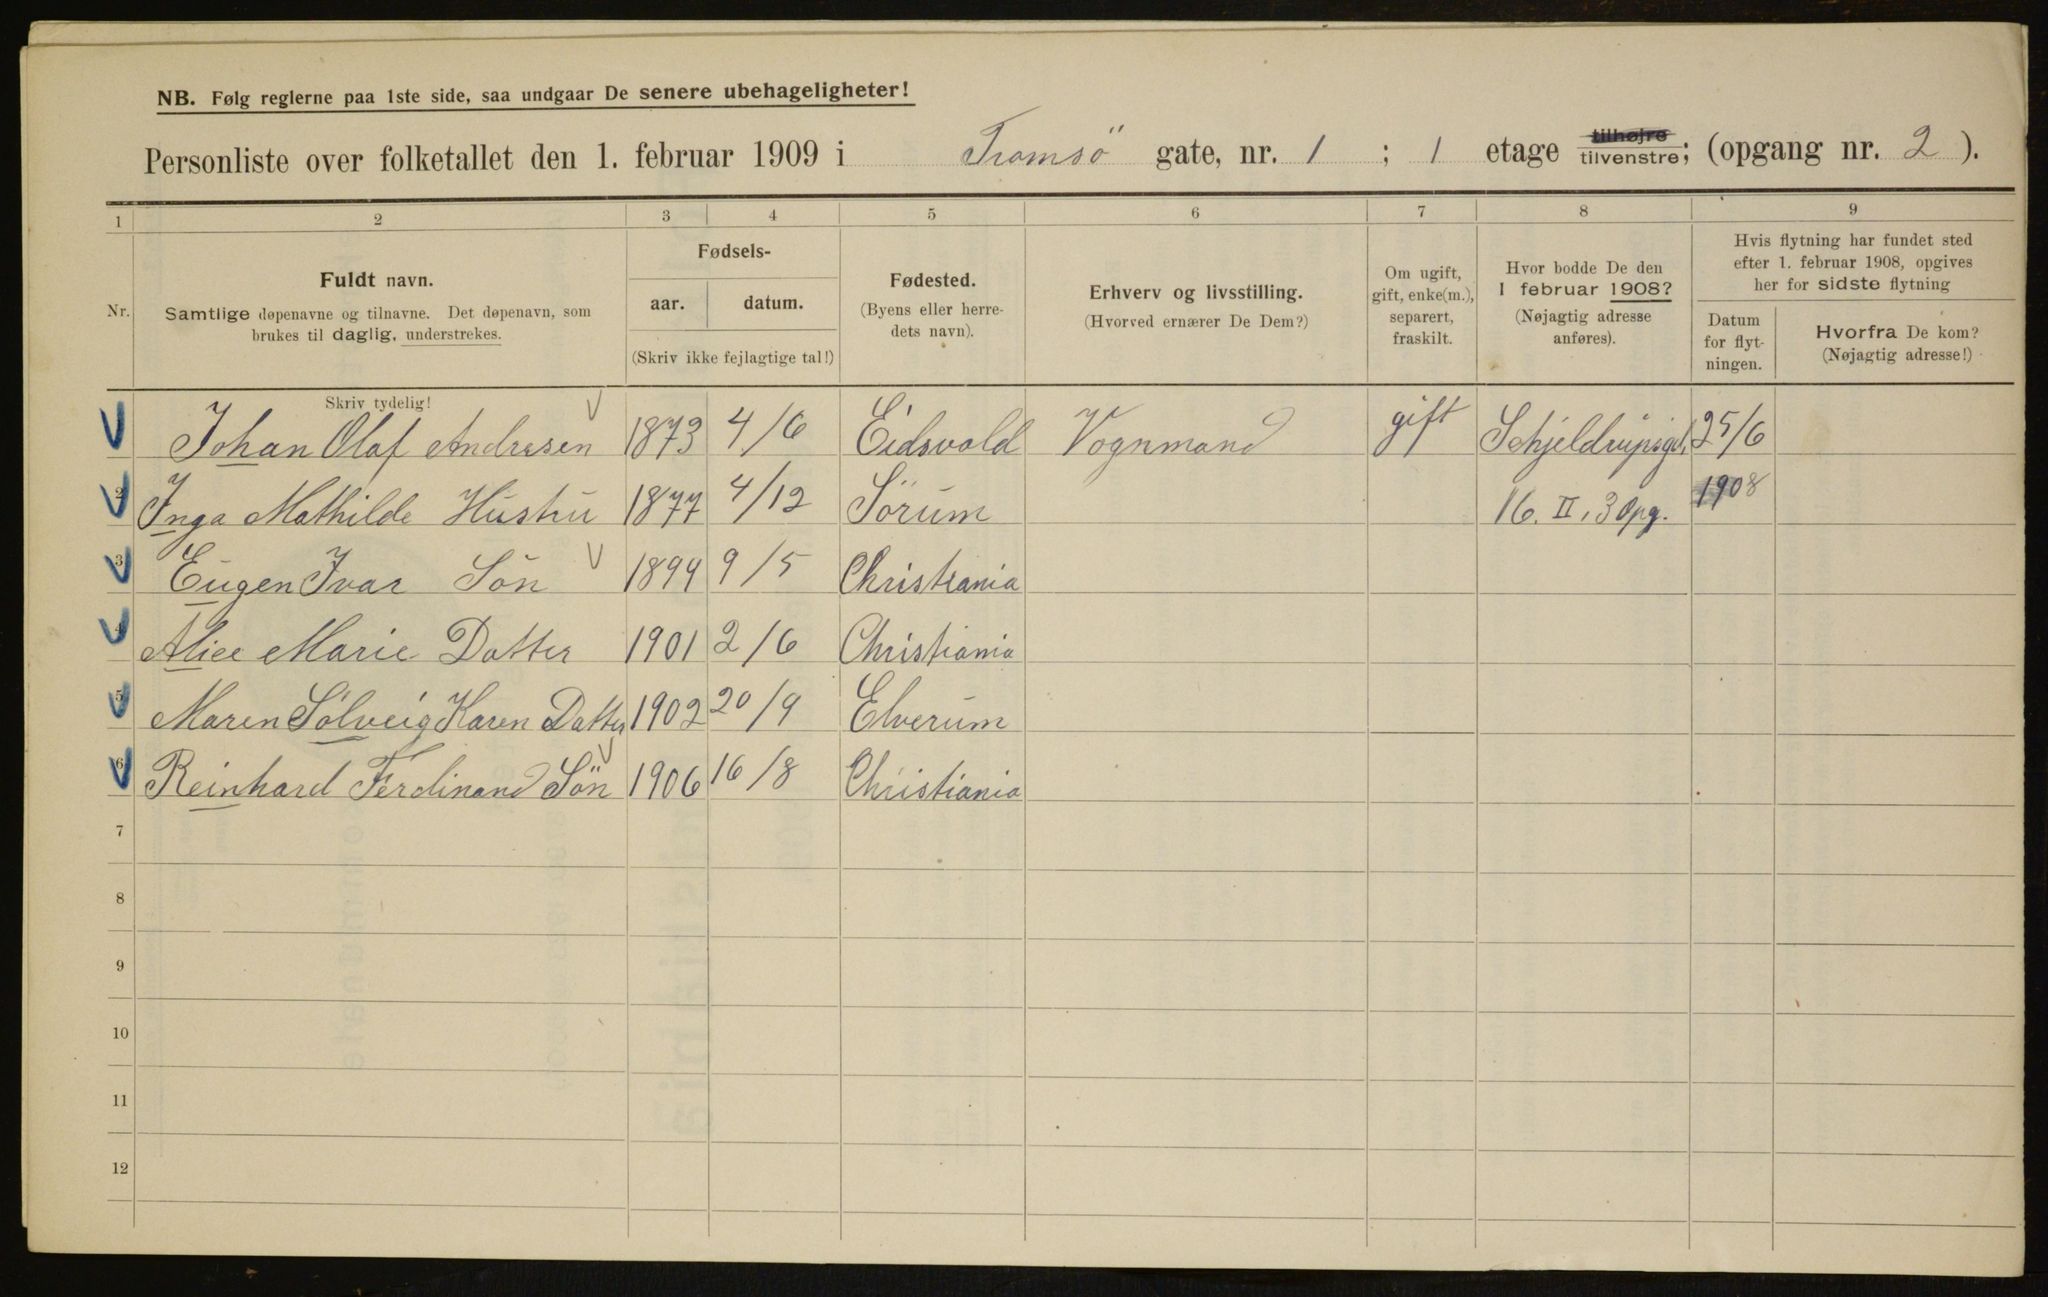 NB. Følg reglerne paa 1ste side, saa undgaar De senere ubehageligheter!
Personliste over folketallet den 1. februar 1909 i Tromsö gate, nr. 1 ; 1 etage tilhøjre tilvenstre; (opgang nr. 2 ).
1 2 3 4 5 6 7 8 9
Nr.
Fuldt navn.
Samtlige døpenavne og tilnavne. Det døpenavn, som
brukes til daglig, understrekes.
Fødsels-
aar. datum.
(Skriv ikke fejlagtige tal!)
Fødested.
(Byens eller herre-
dets navn).
Erhverv og livsstilling.
(Hvorved ernærer De Dem?)
Om ugift,
gift, enke(m.),
separert,
fraskilt.
Hvor bodde De den
1 februar 1908?
(Nøjagtig adresse
anføres).
Hvis flytning har fundet sted
efter 1. februar 1908, opgives
her for sidste flytning
Datum
for flyt-
ningen.
Hvorfra De kom?
(Nøjagtig adresse!)
Skriv tydelig!
Johan Olaf Andresen 1873 4/6 Eidsvold Vognmand gift Schjeldrupsgt. 25/6
2 Inga Mathilde Hustru 1877 4/12 Sörum 16. II, 3 Opg. 1908
3 Eugen Ivar Sön 1899 9/5 Christiania
4 Alice Marie Datter 1901 2/6 Christiania
5 Maren Sölveig Karen Datter 1902 20/9 Elverum
6 Reinhard Ferdinand Sön 1906 16/8 Christiania
7
8
9
10
11
12